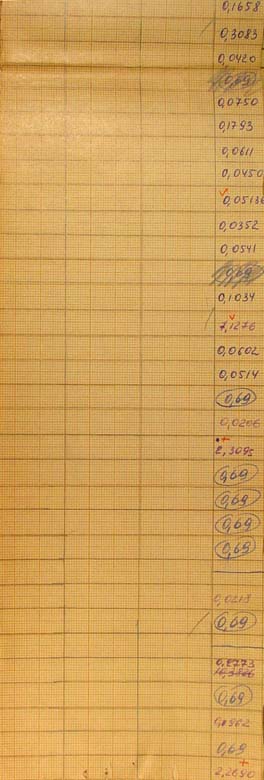 0,1658
0,3083
0,0420
0,69
0,0750
0,1793
0,0611
0,0450
0,0513
0,0352
0,0541
0,69
0,1034
7,1276
0,0602
0,0514
0,69
0,0206
2,3095
0,69
0,69
0,69
0,69
0,0218
0,69
0,69
0,69
2,2690